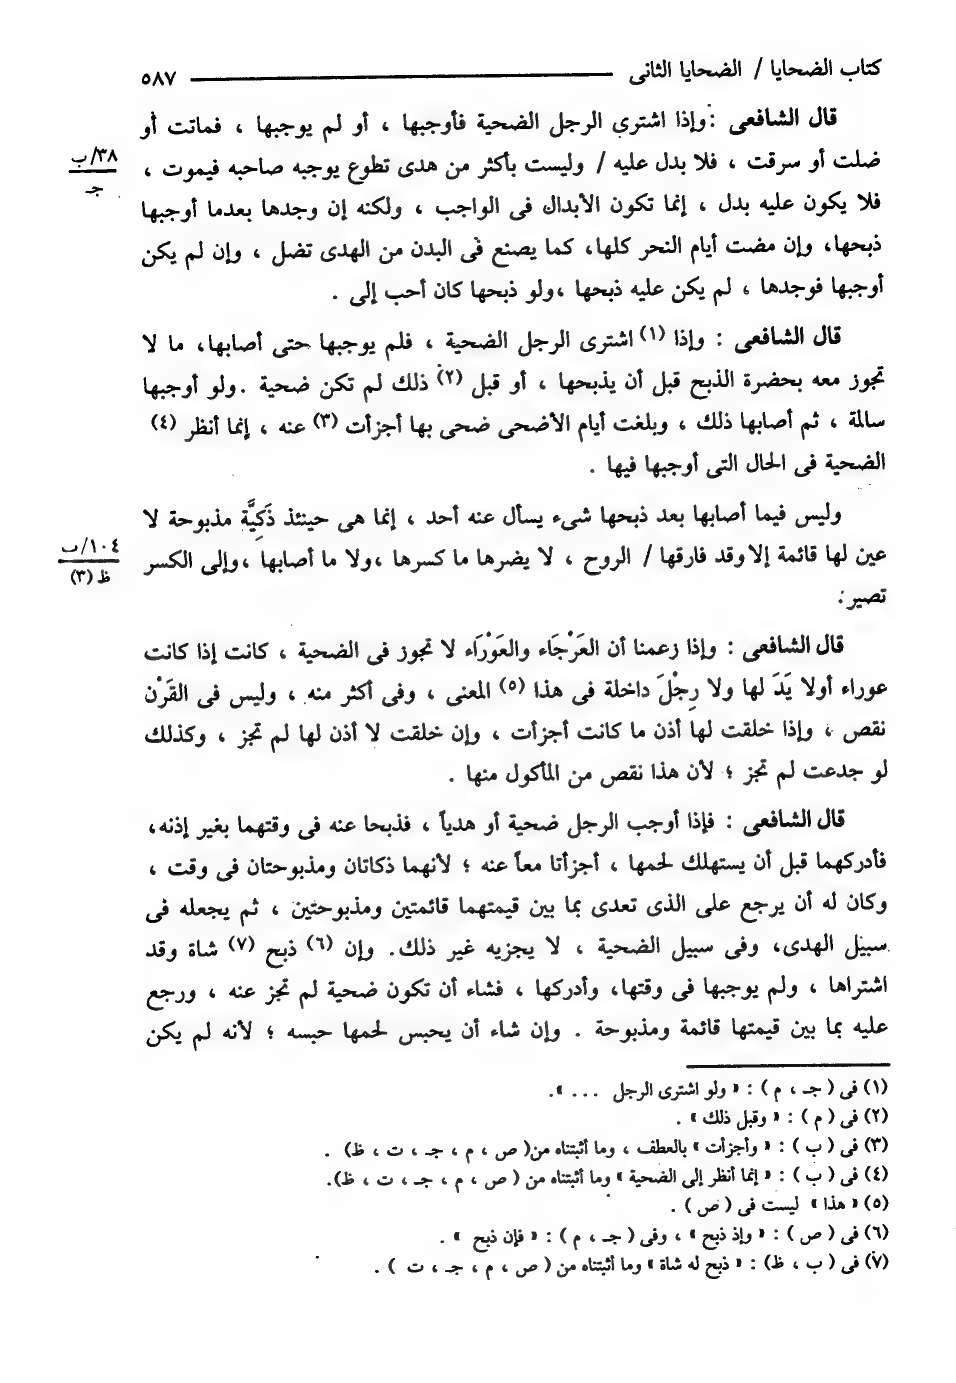 كتاب الضحايا / الضحايا الثانى ـــــــــ ٥٨٧
قال الشافعى : وإذا اشترى الرجل الضحية فأوجبها ، أو لم يوجبها ، فماتت أو
ضلت أو سرقت ، فلا بدل عليه / وليست بأكثر من هدى تطوع يوجبه صاحبه فيموت ،
٣٨/ب
جـ
فلا يكون عليه بدل ، إنما تكون الأبدال فى الواجب ، ولكنه إن وجدها بعدما أوجبها
ذبحها، وإن مضت أيام النحر كلها، كما يصنع فى البدن من الهدى تضل ، وإن لم يكن
أوجبها فوجدها ، لم يكن عليه ذبحها ،ولو ذبحها كان أحب إلى .
قال الشافعى : وإذا (١) اشترى الرجل الضحية ، فلم يوجبها حتى أصابها، ما لا
تجوز معه بحضرة الذبح قبل أن يذبحها ، أو قبل (٢) ذلك لم تكن ضحية .ولو أوجبها
سالمة ، ثم أصابها ذلك ، وبلغت أيام الأضحى ضحى بها أجزأت (٣) عنه ، إنما أنظر (٤)
الضحية فى الحال التى أوجبها فيها .
وليس فيما أصابها بعد ذبحها شىء يسأل عنه أحد ، إنما هى حينئذ ذَكِيَّة مذبوحة لا
عين لها قائمة إلا وقد فارقها / الروح ، لا يضرها ما كسرها ،ولا ما أصابها ،وإلى الكسر
١٠٤/ب
ظ (٣)
تصير.
قال الشافعى : وإذا زعمنا أن العَرْجَاء والعَوْرَاء لا تجوز فى الضحية ، كانت إذا كانت
عوراء أولا يَدَ لها ولا رِجْلَ داخلة فى هذا (٥) المعنى ، وفى أكثر منه ، وليس فى القَرْن
نقص ، وإذا خلقت لها أذن ما كانت أجزأت ، وإن خلقت لا أذن لها لم تجز ، وكذلك
لو جدعت لم تجز ؛ لأن هذا نقص من المأكول منها .
قال الشافعى : فإذا أوجب الرجل ضحية أو هدياً ، فذبحا عنه فى وقتهما بغير إذنه،
فأدركهما قبل أن يستهلك لحمها ، أجزأتا معاً عنه ؛ لأنهما ذكاتان ومذبوحتان فى وقت ،
وكان له أن يرجع على الذى تعدى بما بين قيمتهما قائمتين ومذبوحتين ، ثم يجعله فى
سبيل الهدى، وفى سبيل الضحية ، لا يجزيه غير ذلك. وإن (٦) ذبح (٧) شاة وقد
اشتراها ، ولم يوجبها فى وقتها، وأدركها ، فشاء أن تكون ضحية لم تجز عنه ، ورجع
عليه بما بين قيمتها قائمة ومذبوحة . وإن شاء أن يحبس لحمها حبسه ؛ لأنه لم يكن
(١) فى ( جـ ، م ) : « ولو اشترى الرجل ... ».
(٢) فى ( م ) : « وقبل ذلك » .
(٣) فى ( ب ) : « وأجزأت » بالعطف ، وما أثبتناه من( ص ، م ، جـ ، ت ، ظ) .
(٤) فى ( ب ) : « إنما أنظر إلى الضحية » وما أثبتناه من ( ص ، م ، جـ ، ت ، ظ).
(٥) « هذا » ليست فى ( ص ) .
(٦) فى ( ص ) : « وإذ ذبح » ، وفى ( جـ ، م ) : « فإن ذبح » .
(٧) فى ( ب ، ظ) : « ذبح له شاة » وما أثبتناه من ( ص ، م ، جـ ، ت ) .